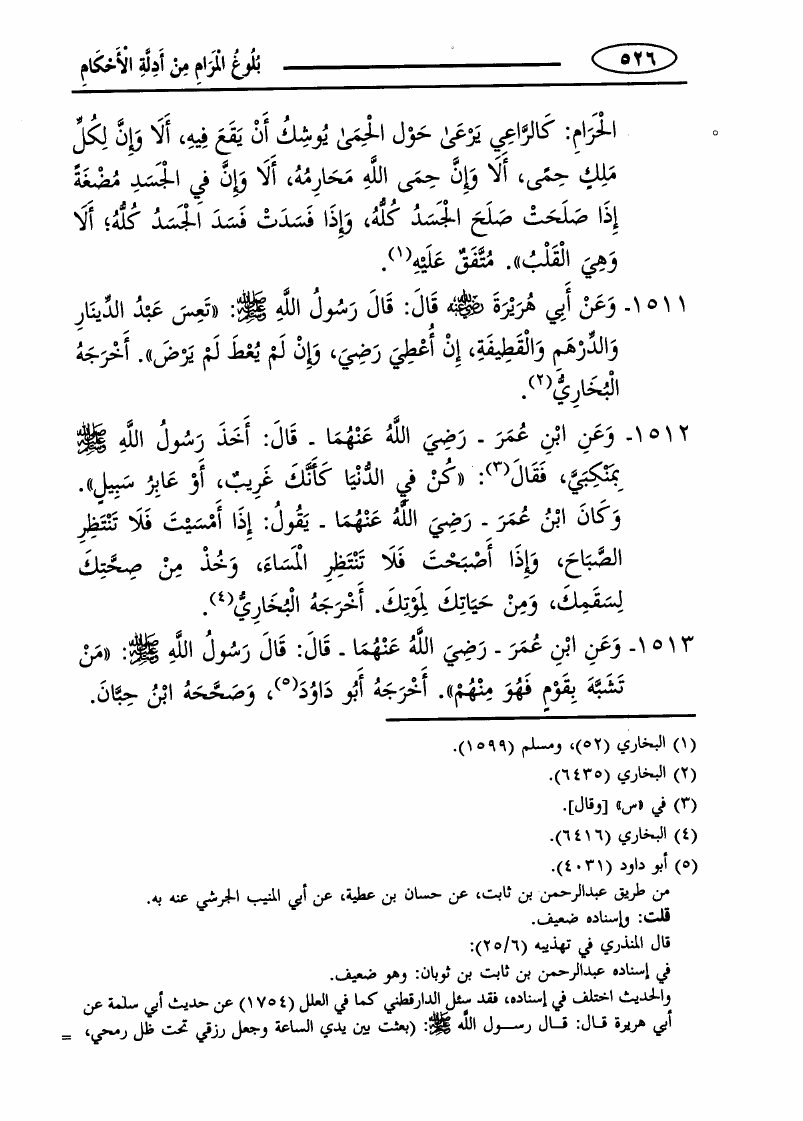 ٥٢٦ بُلُوغُ الْمَرَامِ مِنْ أَدِلَّةِ الْأَحْكَامِ
الْحَرَامِ: كَالرَّاعِي يَرْعَىٰ حَوْل الْحِمَىٰ يُوشِكُ أَنْ يَقَعَ فِيهِ، أَلَا وَإِنَّ لِكُلِّ
مَلِكٍ حِمًى، أَلَا وَإِنَّ حِمَى اللَّهِ مَحَارِمُهُ، أَلَا وَإِنَّ فِي الْجَسَدِ مُضْغَةً
إِذَا صَلَحَتْ صَلَحَ الْجَسَدُ كُلُّهُ، وَإِذَا فَسَدَتْ فَسَدَ الْجَسَدُ كُلُّهُ؛ أَلَا
وَهِيَ الْقَلْبُ». مُتَّفَقٌ عَلَيْهِ(١).
١٥١١- وَعَنْ أَبِي هُرَيْرَةَ رضي الله عنه قَالَ: قَالَ رَسُولُ اللَّهِ ﷺ: «تَعِسَ عَبْدُ الدِّينَارِ
وَالدِّرْهَمِ وَالْقَطِيفَةِ، إِنْ أُعْطِيَ رَضِيَ، وَإِنْ لَمْ يُعْطَ لَمْ يَرْضَ». أَخْرَجَهُ
الْبُخَارِيُّ(٢).
١٥١٢- وَعَنِ ابْنِ عُمَرَ - رَضِيَ اللَّهُ عَنْهُمَا - قَالَ: أَخَذَ رَسُولُ اللَّهِ ﷺ
بِمَنْكِبَيَّ، فَقَالَ(٣): «كُنْ فِي الدُّنْيَا كَأَنَّكَ غَرِيبٌ، أَوْ عَابِرُ سَبِيلٍ».
وَكَانَ ابْنُ عُمَرَ - رَضِيَ اللَّهُ عَنْهُمَا - يَقُولُ: إِذَا أَمْسَيْتَ فَلَا تَنْتَظِرِ
الصَّبَاحَ، وَإِذَا أَصْبَحْتَ فَلَا تَنْتَظِرِ الْمَسَاءَ، وَخُذْ مِنْ صِحَّتِكَ
لِسَقَمِكَ، وَمِنْ حَيَاتِكَ لِمَوْتِكَ. أَخْرَجَهُ الْبُخَارِيُّ(٤).
١٥١٣- وَعَنِ ابْنِ عُمَرَ - رَضِيَ اللَّهُ عَنْهُمَا - قَالَ: قَالَ رَسُولُ اللَّهِ ﷺ: «مَنْ
تَشَبَّهَ بِقَوْمٍ فَهُوَ مِنْهُمْ». أَخْرَجَهُ أَبُو دَاوُدَ(٥)، وَصَحَّحَهُ ابْنُ حِبَّانَ.
(١) البخاري (٥٢)، ومسلم (١٥٩٩).
(٢) البخاري (٦٤٣٥).
(٣) في «س» [وقال].
(٤) البخاري (٦٤١٦).
(٥) أبو داود (٤٠٣١).
من طريق عبدالرحمن بن ثابت، عن حسان بن عطية، عن أبي المنيب الجرشي عنه به.
قلت: وإسناده ضعيف.
قال المنذري في تهذيبه (٢٥/٦):
في إسناده عبدالرحمن بن ثابت بن ثوبان: وهو ضعيف.
والحديث اختلف في إسناده، فقد سئل الدارقطني كما في العلل (١٧٥٤) عن حديث أبي سلمة عن
أبي هريرة قال: قال رسول الله ﷺ: (بعثت بين يدي الساعة وجعل رزقي تحت ظل رمحي، =